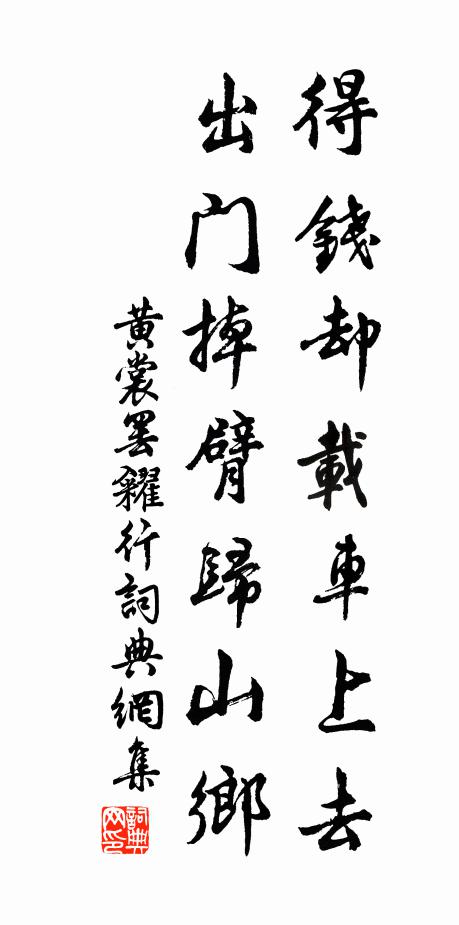 得錢却載車上去
出門掉臂歸山鄉
黃裳罷糴行詞典網集
詞典網印